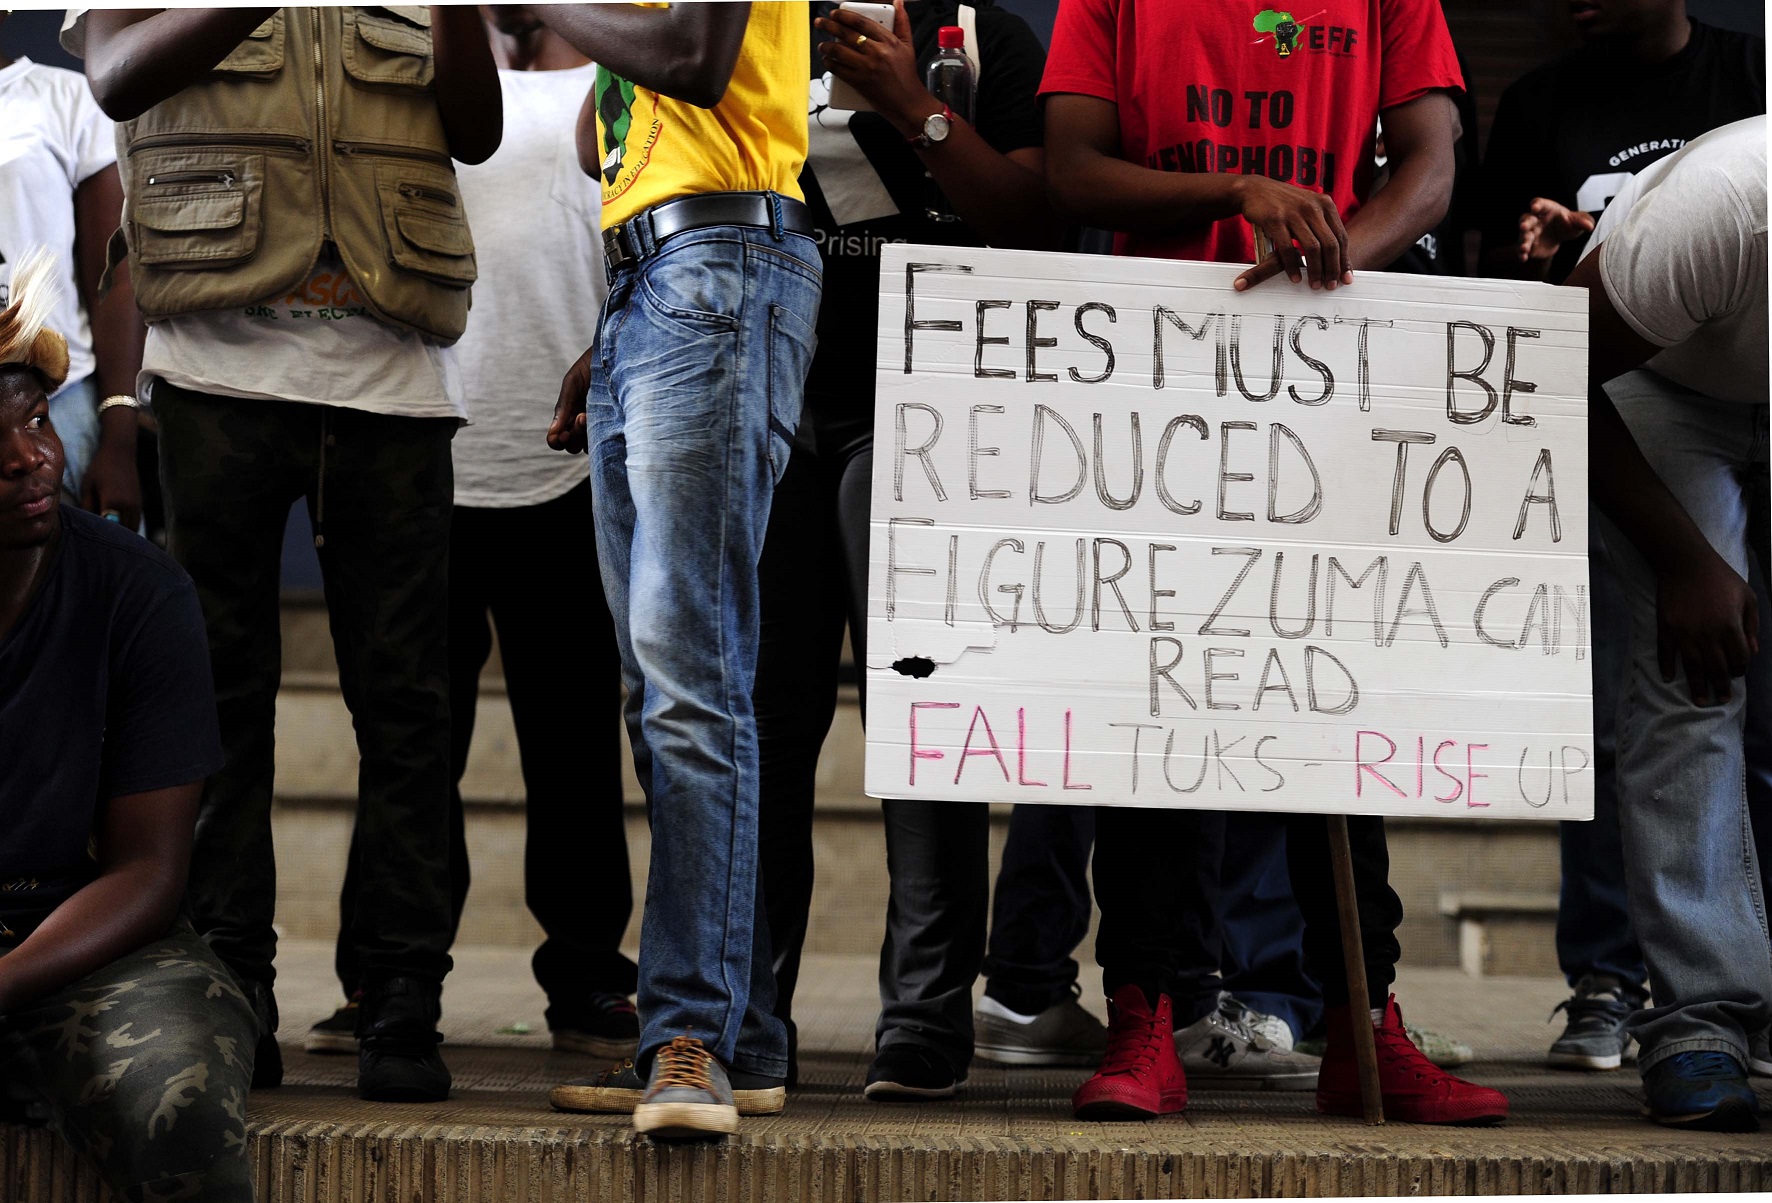 EFF
NO TO
GENERATI
Prising
FEES MUST BE
REDUCED TO A
FIGURE ZUMA CAN
READ
FALL TUKS - RISE UP